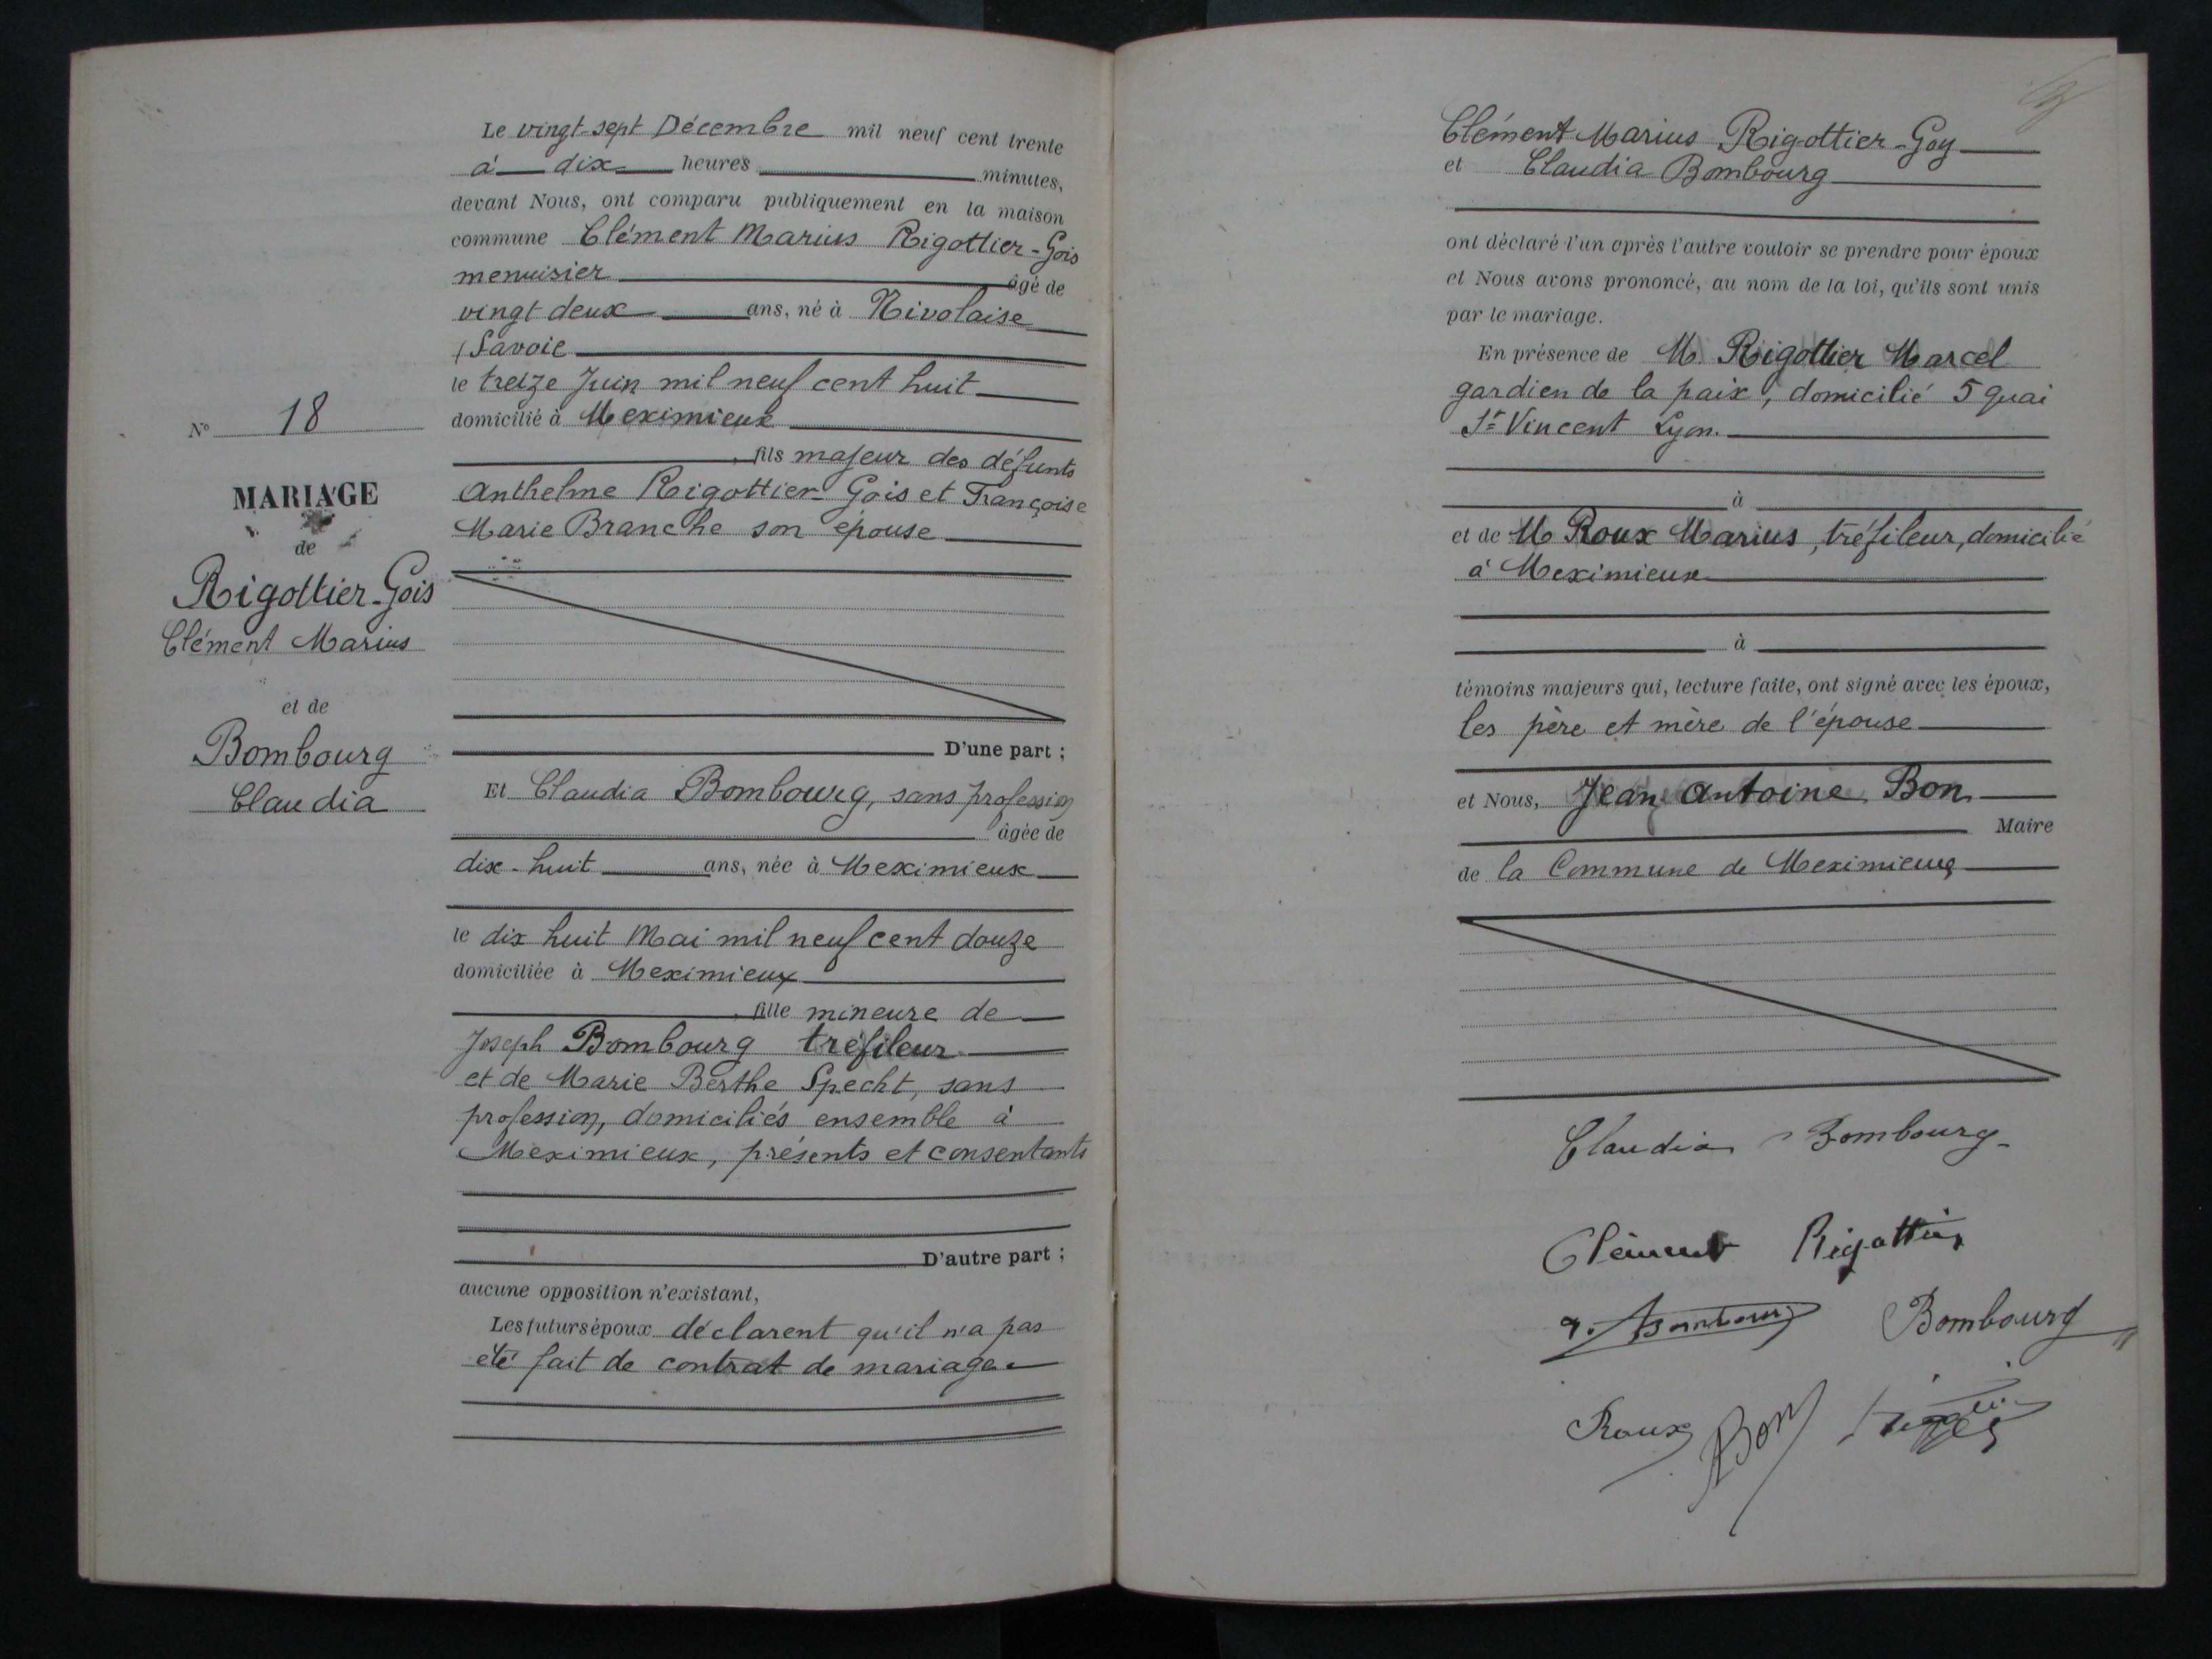 N° 18
MARIAGE
de
Rigottier-Gois
Clément Marius
et de
Bombourg
Claudia
Le vingt-sept Décembre mil neuf cent trente
à dix heures minutes,
devant Nous, ont comparu publiquement en la maison
commune Clément Marius Rigottier-Gois
menuisier âgé de
vingt deux ans, né à Nivolaise
(Savoie
le treize Juin mil neuf cent huit
domicilié à Meximieux
, fils majeur des défunts
Anthelme Rigottier-Gois et Françoise
Marie Branche son épouse
D'une part ;
Et Claudia Bombourg, sans profession
âgée de
dix-huit ans, née à Meximieux
le dix huit Mai mil neuf cent douze
domiciliée à Meximieux
, fille mineure de
Joseph Bombourg tréfileur
et de Marie Berthe Specht, sans
profession, domiciliés ensemble à
Meximieux, présents et consentants
D'autre part ;
aucune opposition n'existant,
Les futurs époux déclarent qu'il n'a pas
été fait de contrat de mariage
Clément Marius Rigottier-Goy
et Claudia Bombourg
ont déclaré l'un après l'autre vouloir se prendre pour époux
et Nous avons prononcé, au nom de la loi, qu'ils sont unis
par le mariage.
En présence de M. Rigottier Marcel
gardien de la paix, domicilié 5 quai
St Vincent Lyon.
à
et de M Roux Marius, tréfileur, domicilié
à Meximieux
à
témoins majeurs qui, lecture faite, ont signé avec les époux,
les père et mère de l'épouse
et Nous, Jean Antoine Bon
Maire
de la Commune de Meximieux
Claudia Bombourg
Clément Rigottier
Bombourg Bombourg
Roux Bon